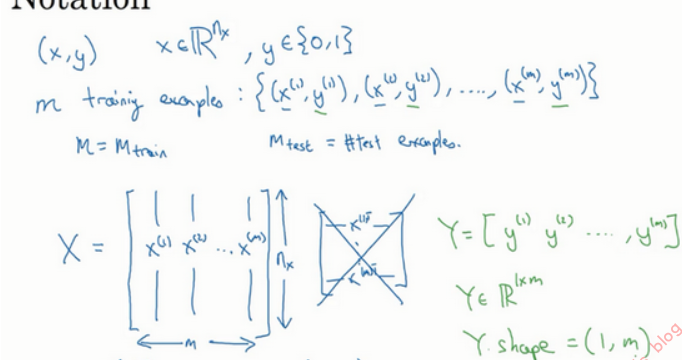 Notation
(x,y) x∈ℝ^{n_x}, y∈{0,1}
m training examples : {(x^{(1)}, y^{(1)}), (x^{(2)}, y^{(2)}), ...., (x^{(m)}, y^{(m)})}
M = M_{train} M_{test} = #test examples.
X = [ x^{(1)} x^{(2)} ... x^{(m)} ] n_x
m
x^{(1)T}
x^{(m)T}
Y = [ y^{(1)} y^{(2)} .... , y^{(m)} ]
Y∈ℝ^{1×m}
Y.shape = (1, m)
blog